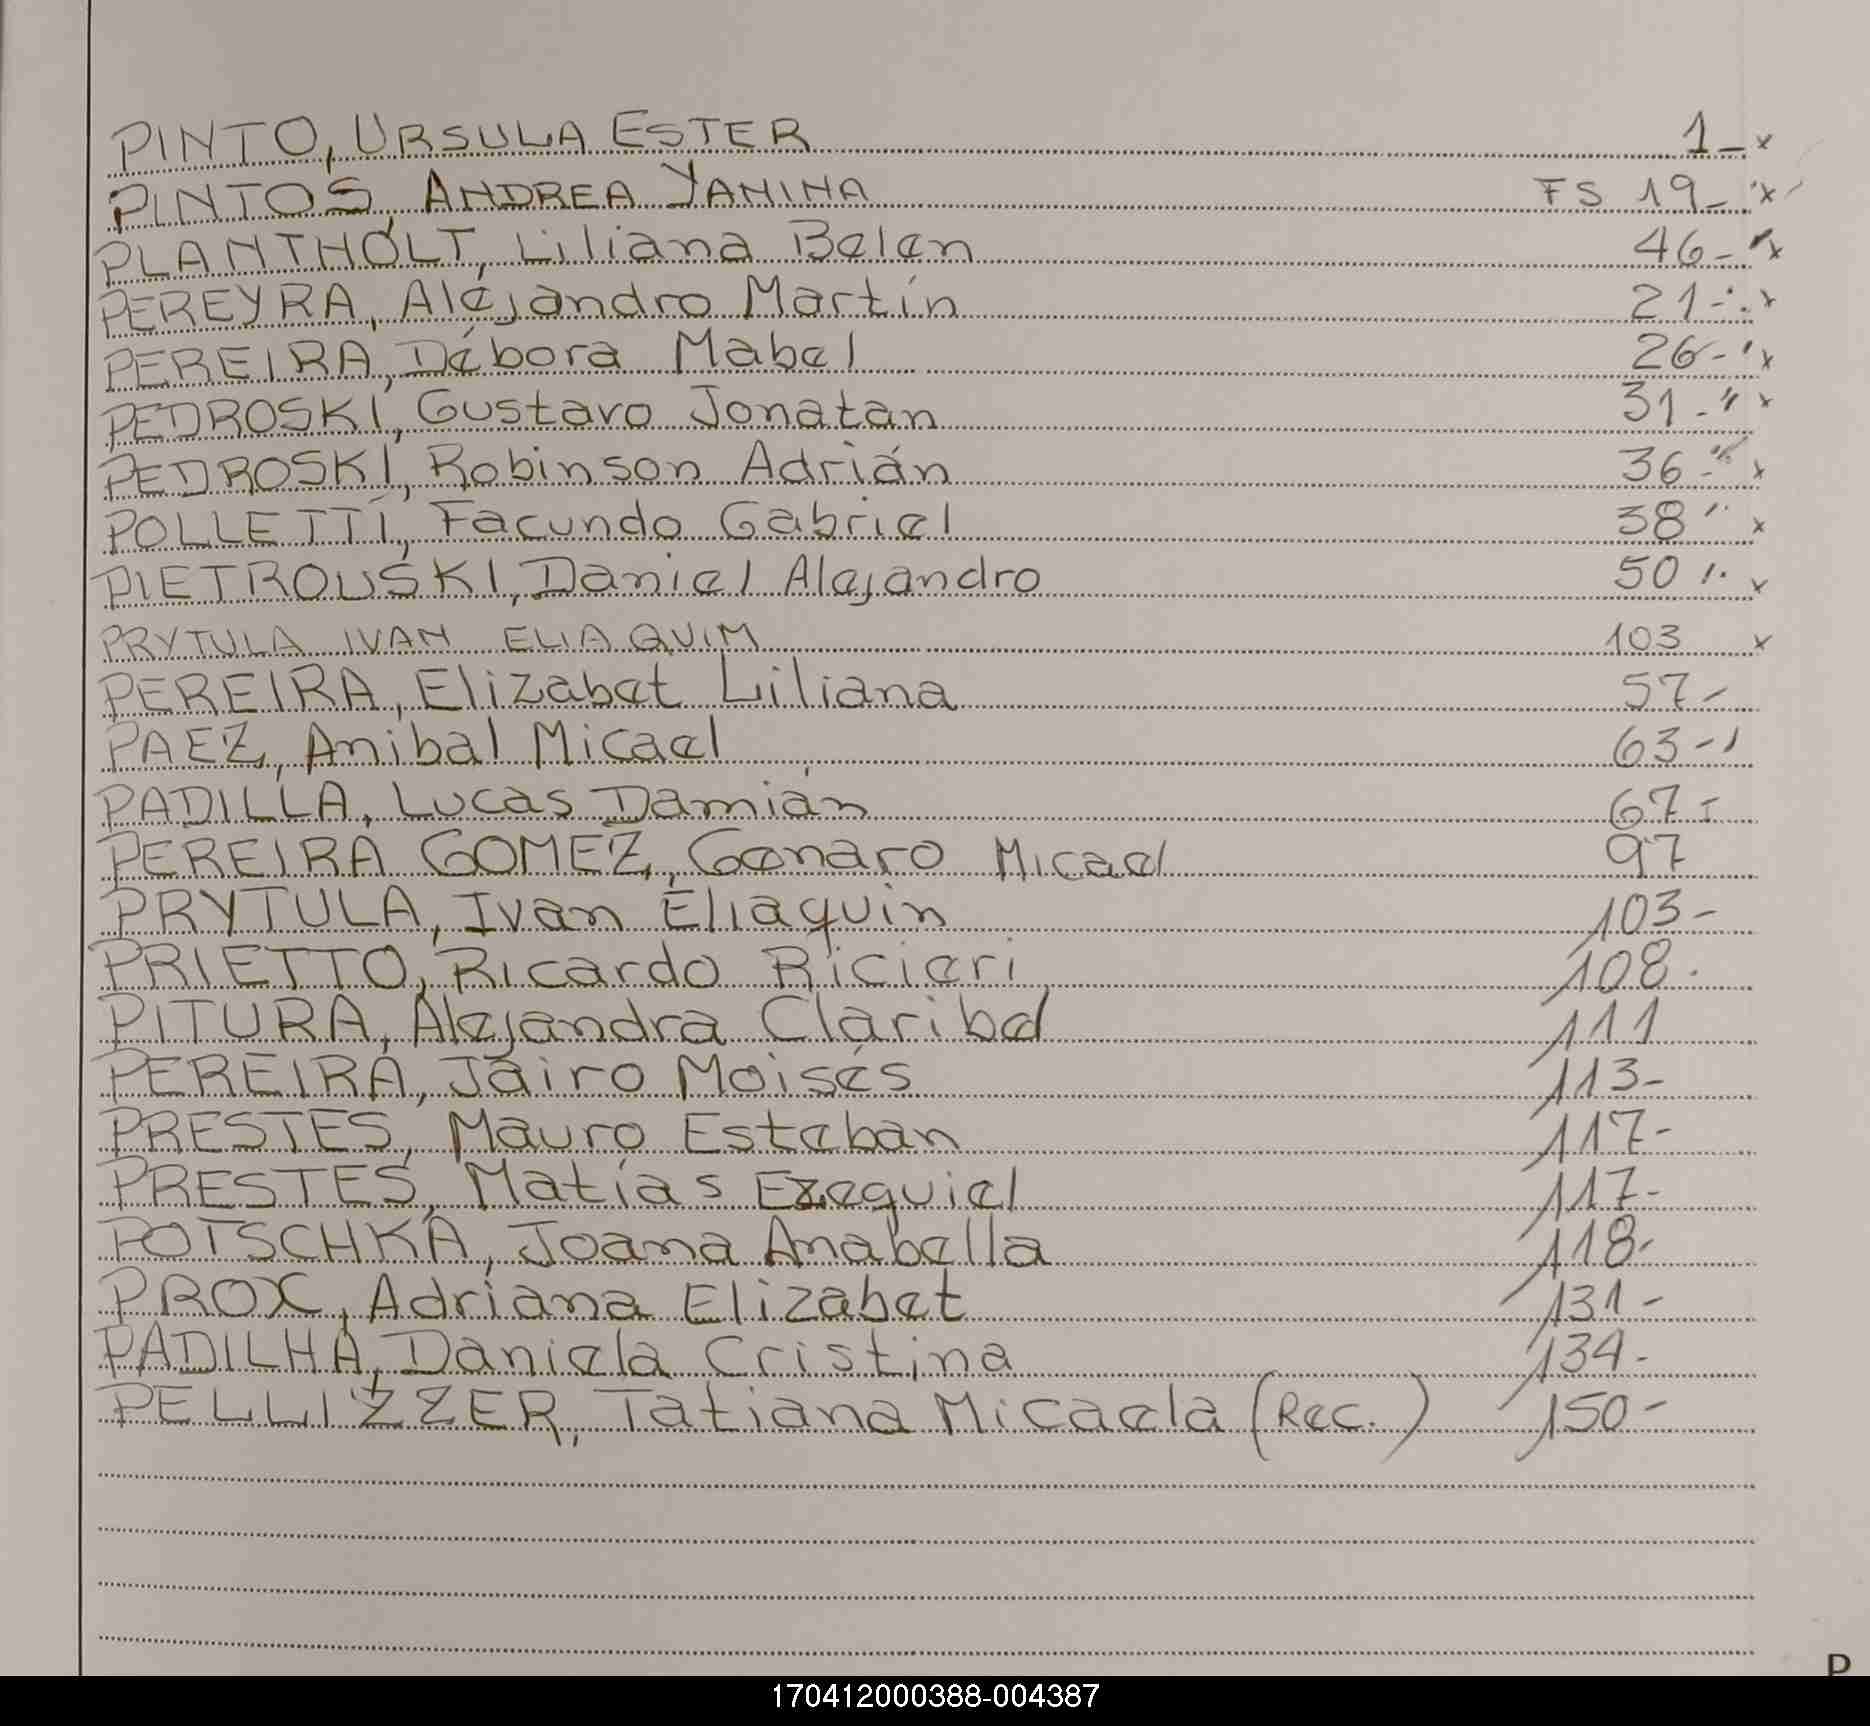 PINTO, URSULA ESTER 1_ x
PINTOS, ANDREA YANINA FS 19_ " x
PLANTHOLT, Liliana Belen 46- " x
PEREYRA, Alejandro Martín 21- " x
PEREIRA, Débora Mabel 26- " x
PEDROSKI, Gustavo Jonatan 31- " x
PEDROSKI, Robinson Adrián 36- " x
POLLETTI, Facundo Gabriel 38 " x
PIETROUSKI, Daniel Alejandro 50 " x
PRYTULA IVAN ELIAQUIM 103 x
PEREIRA, Elizabet Liliana 57-
PAEZ, Anibal Micael 63-
PADILLA, Lucas Damián 67-
PEREIRA GOMEZ, Genaro Micael 97
PRYTULA, Ivan Eliaquin 103-
PRIETTO, Ricardo Ricieri 108-
PITURA, Alejandra Claribel 111
PEREIRA, Jairo Moisés 113-
PRESTES, Mauro Esteban 117-
PRESTES, Matías Ezequiel 117-
POTSCHKA, Joana Anabella 118-
PROX, Adriana Elizabet 131-
PADILHA, Daniela Cristina 134-
PELLIZZER, Tatiana Micaela (Rec.) 150-
P
170412000388-004387